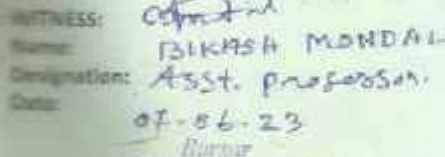 WITNESS:
Name: BIKASH MONDAL
Designation: Asst. professor.
Date:
07-06-23